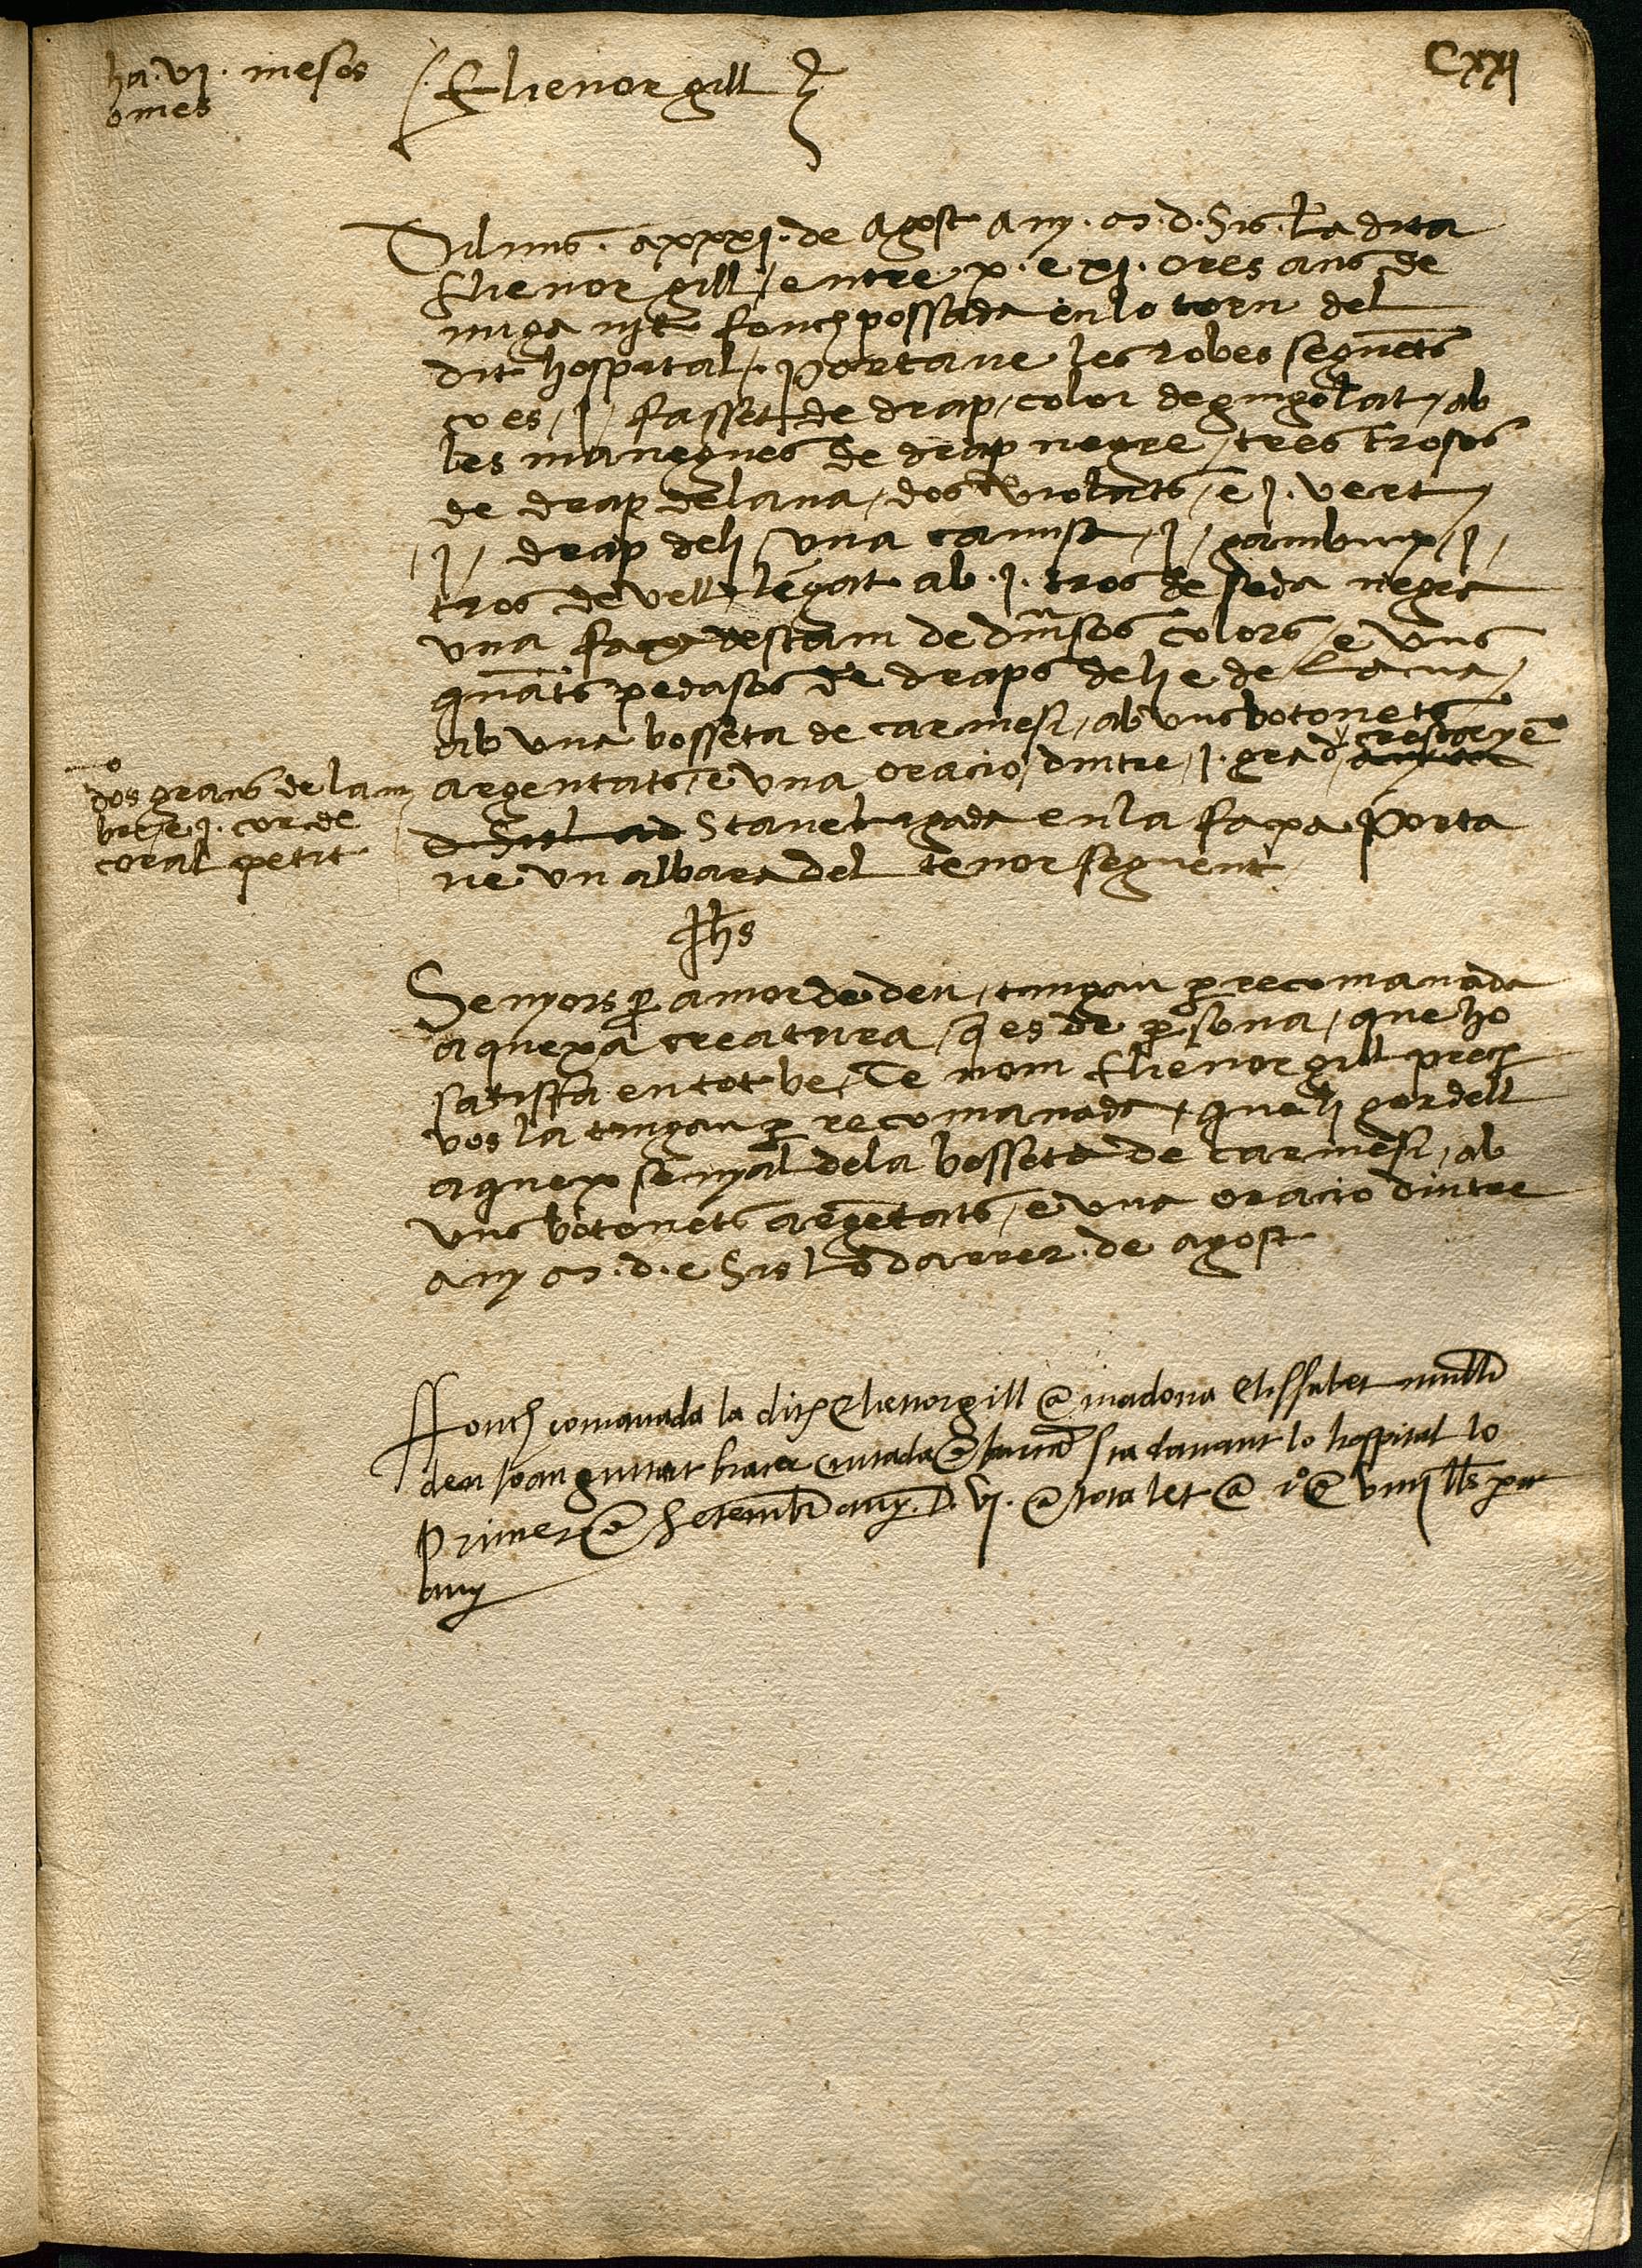 Cxxj
ha .vj. mesos
o mes
Elienor gill
Diluns . a xxxj . de agost any .m.d. Sis . la dita
Elienor gill / entre .x. e xj. ores ans de
miga njt fonch possada en lo torn del
dit hospital / . portaue les robes seguẽts
ço es / j / fasset de drap / color de gingolat / ab
les manegues de drap negre / tres trosos
de drap de lana / dos violats / e j . vert /
/ j / drap de lj / vna camisa / j / / j /
tros de vell legat ab .j. tros de seda negre
vna faxa destam de diũsos colors / e vns
quãts pedasos de draps de lj e de lana /
ab vna bosseta de carmesi / ab vns botonets
argentats / e vna oracio / dintre / j . gra d crestorye
Staue ligada en la faxa Porta
ue vn albara del tenor seguent
dos grans de lam
bre / e j . cor de
coral petit
Jhs
Senyors p amor de deu / tingau p recomanada
aquexa creatura / q es de psona / que ho
satisfa en tot be / Te nom Elienor gill prech
vos la tingau p recomanada / que lj gordell
aquex senyal de la bosseta de carmesi / ab
vns botonets argẽtats / e vna oracio dintre
any m.d. e Sis lo darrer . de agost
Fonch comanada la dita Elienor gill a madona Elissabet mull
den Joan guitart ciutada sta dauant lo hospital lo
Primer de Setembre any. D. vj. a tota let a lls per
any